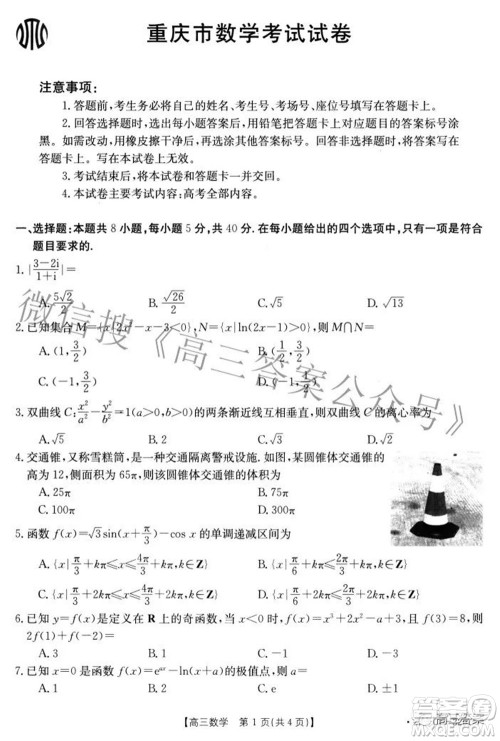 重庆市数学考试试卷
注意事项:
1. 答题前,考生务必将自己的姓名、考生号、考场号、座位号填写在答题卡上。
2. 回答选择题时,选出每小题答案后,用铅笔把答题卡对应题目的答案标号涂
黑。如需改动,用橡皮擦干净后,再选涂其他答案标号。回答非选择题时,将答案写在
答题卡上。写在本试卷上无效。
3. 考试结束后,将本试卷和答题卡一并交回。
4. 本试卷主要考试内容:高考全部内容。
一、选择题:本题共 8 小题,每小题 5 分,共 40 分. 在每小题给出的四个选项中,只有一项是符合
题目要求的.
1. |(3-2i)/(1+i)|=
A. 5√2/2 B. √26/2 C. √5 D. √13
2. 已知集合 M={x|2x²-x-3<0}, N={x|ln(2x-1)>0},则 M∩N=
A. (1, 3/2) B. (1/2, 3/2) C. (-1, 3/2) D. (1/2, 1)
3. 双曲线 C: x²/a²-y²/b²=1(a>0,b>0)的两条渐近线互相垂直,则双曲线 C 的离心率为
A. √5 B. 2 C. √3 D. √2
4. 交通锥,又称雪糕筒,是一种交通隔离警戒设施. 如图,某圆锥体交通锥的
高为 12,侧面积为 65π,则该圆锥体交通锥的体积为
A. 25π B. 75π
C. 100π D. 300π
5. 函数 f(x)=√3sin(x+π/3)-cos x 的单调递减区间为
A. {x|π/3+kπ≤x≤4π/3+kπ,k∈Z} B. {x|π/6+kπ≤x≤2π/3+kπ,k∈Z}
6. 已知 f(x)是定义在 R 上的奇函数,当 x<0 时,f(x)=x³+2x²-a+3,且 f(3)=8,则
2f(1)+f(-2)=
A. 4 B. 2 C. 3 D. 1
7. 已知 x=0 是函数 f(x)=eᵃˣ-ln(x+a)的极值点,则 a=
A. 1 B. 2 C. e D. ±1
【高三数学 第 1 页(共 4 页)】
微信搜《高三答案公众号》